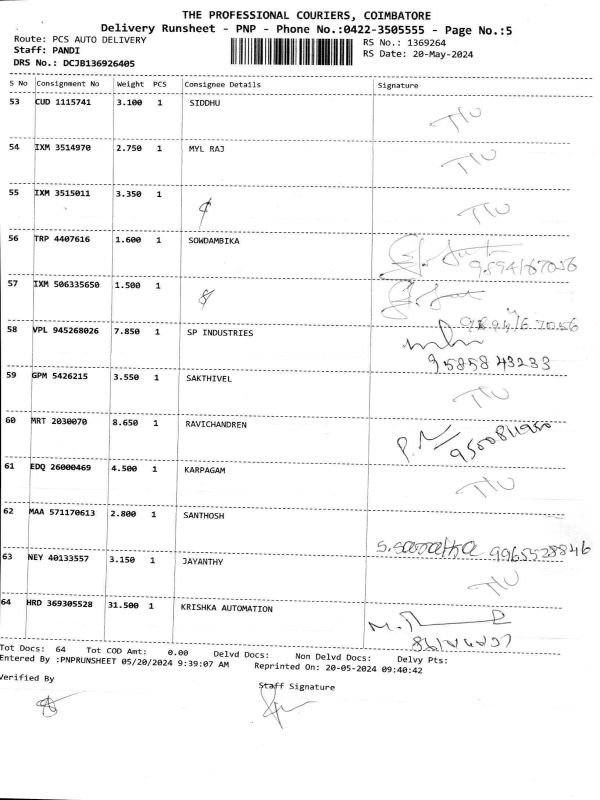 THE PROFESSIONAL COURIERS, COIMBATORE
Delivery Runsheet - PNP - Phone No.:0422-3505555 - Page No.:5
Route: PCS AUTO DELIVERY RS No.: 1369264
Staff: PANDI RS Date: 20-May-2024
DRS No.: DCJB136926405
S No Consignment No Weight PCS Consignee Details Signature
53 CUD 1115741 3.100 1 SIDDHU
54 IXM 3514970 2.750 1 MYL RAJ
55 IXM 3515011 3.350 1
56 TRP 4407616 1.600 1 SOWDAMBIKA
9594167056
57 IXM 506335650 1.500 1
58 VPL 945268026 7.850 1 SP INDUSTRIES
9585843233
59 GPM 5426215 3.550 1 SAKTHIVEL
60 MRT 2030070 8.650 1 RAVICHANDREN
61 EDQ 26000469 4.500 1 KARPAGAM
62 MAA 571170613 2.800 1 SANTHOSH
9965528846
63 NEY 40133557 3.150 1 JAYANTHY
64 HRD 369305528 31.500 1 KRISHKA AUTOMATION
Tot Docs: 64 Tot COD Amt: 0.00 Delvd Docs: Non Delvd Docs: Delvy Pts:
Entered By :PNPRUNSHEET 05/20/2024 9:39:07 AM Reprinted On: 20-05-2024 09:40:42
Verified By
Staff Signature